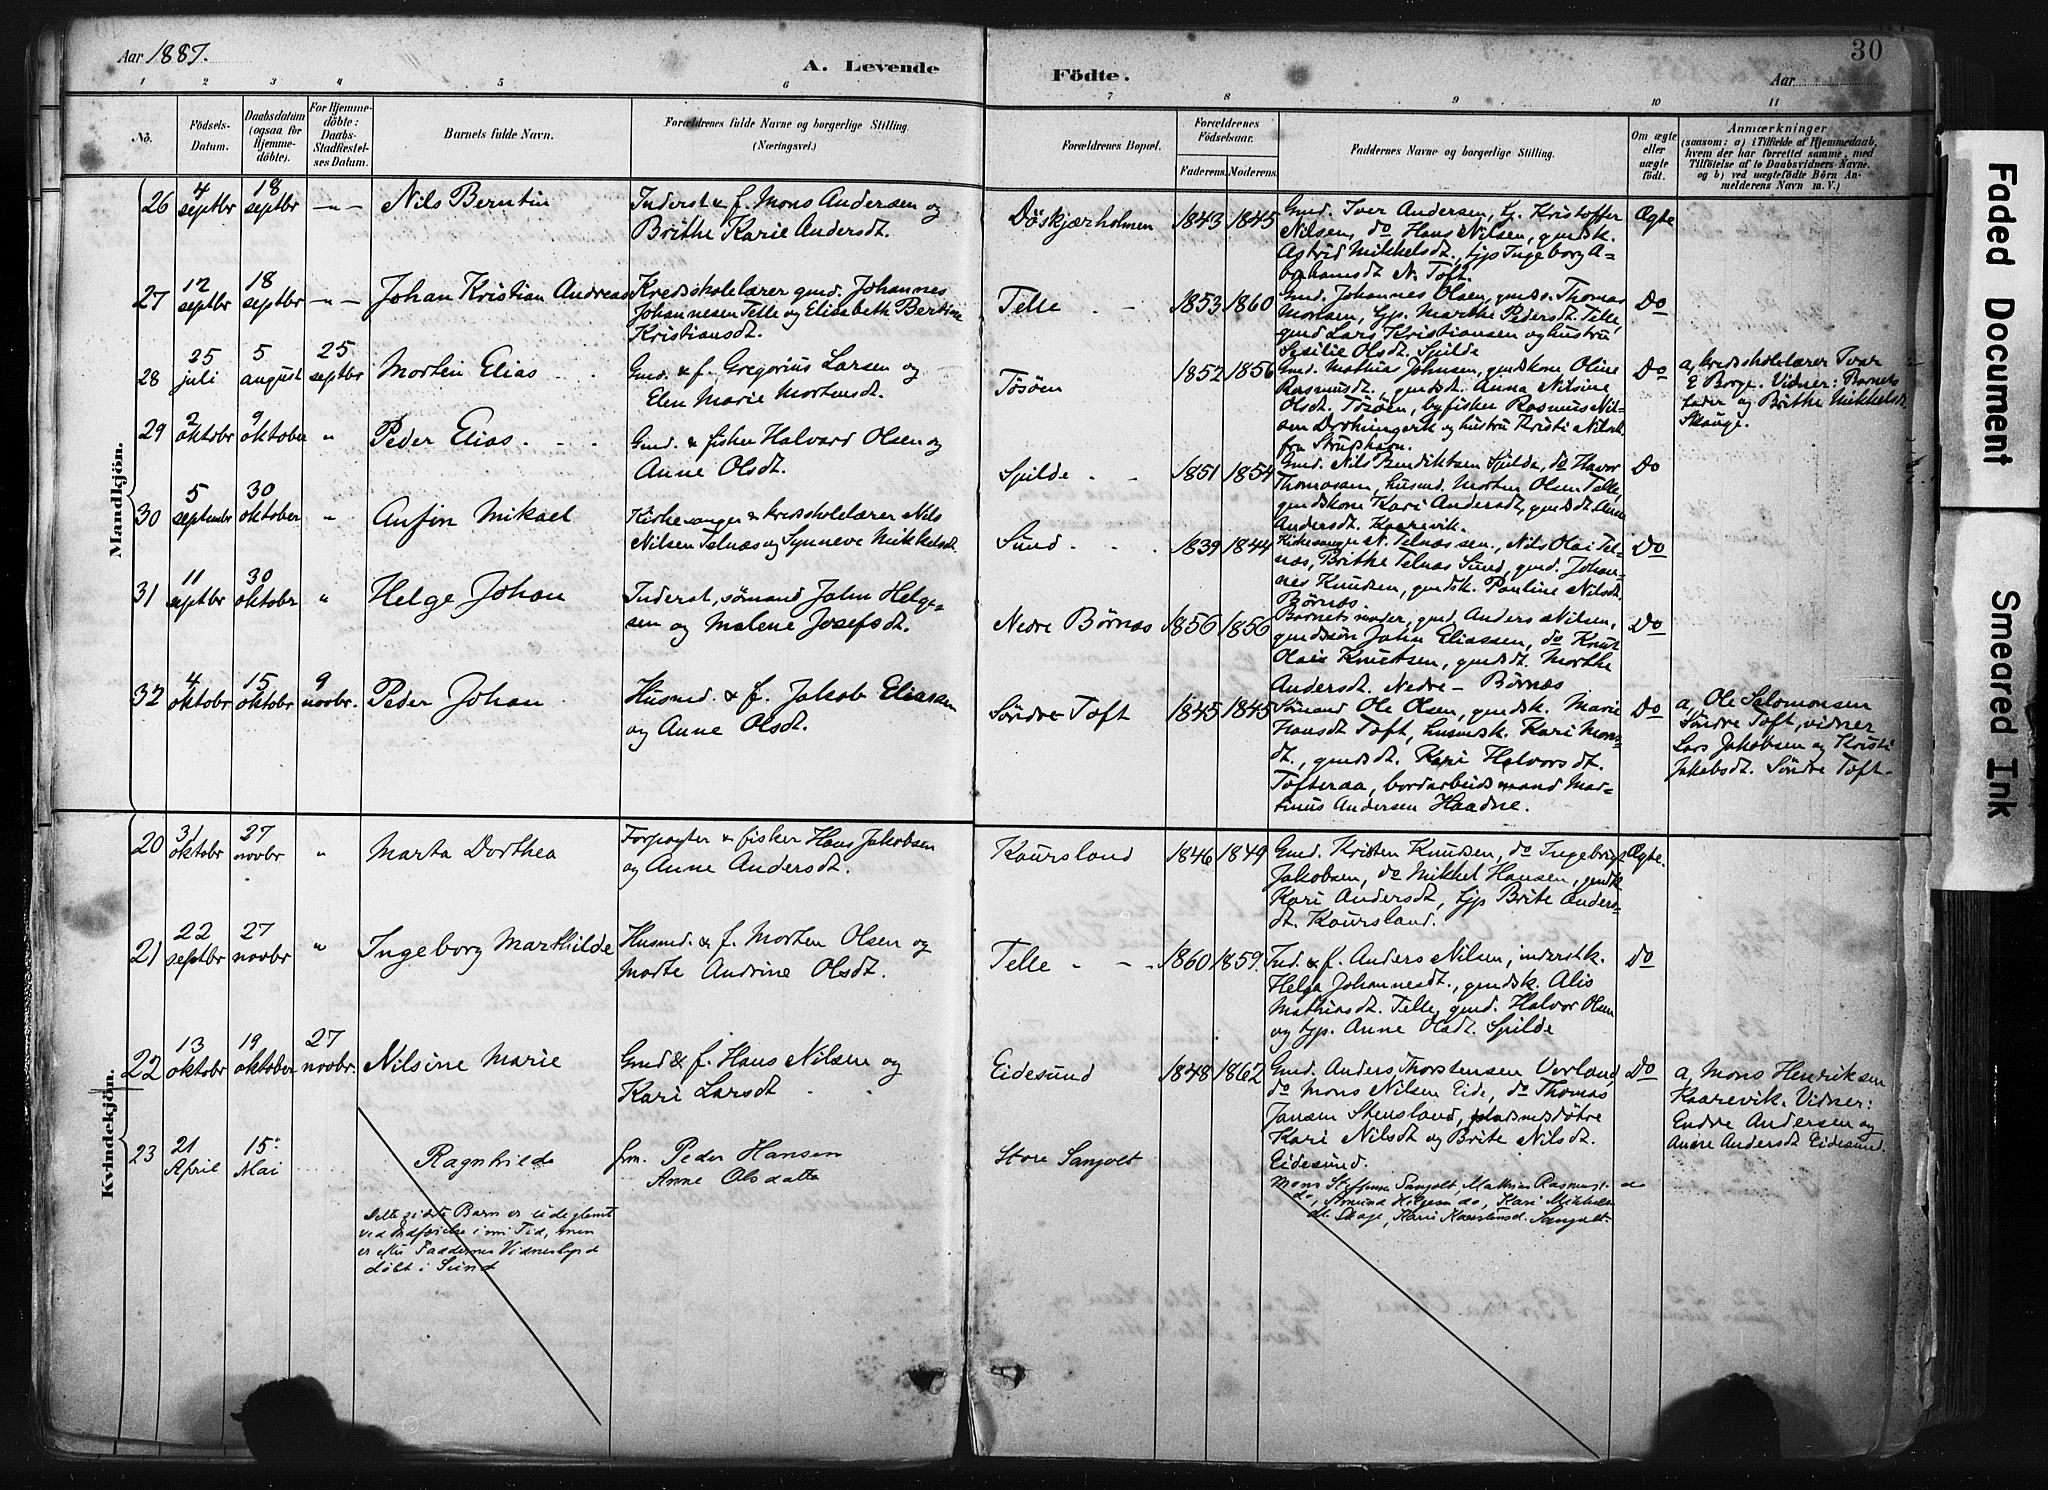 Aar 1887.
A. Levende Födte.
Aar
30
1 2 3 4 5 6 7 8 9 10 11
No.
Födsels-
Datum.
Daabsdatum
(ogsaa for
Hjemme-
döbte).
For Hjemme-
döbte:
Daabs-
Stadfæstel-
ses Datum.
Barnets fulde Navn.
Forældrenes fulde Navne og borgerlige Stilling.
(Næringsvei.)
Forældrenes Bopæl.
Forældrenes
Födselsaar.
Faderens. Moderens.
Faddernes Navne og borgerlige Stilling.
Om ægte
eller
uægte
födt.
Anmærkninger
(saasom: a) i Tilfælde af Hjemmedaab,
hvem der har forrettet samme, med
Tilföielse af to Daabsvidners Navne,
og b) ved uægtefödte Börn An-
melderens Navn m. V.)
Mandkjön.
26 4 septbr 18 septbr Nils Berntin
Inderst & f. Mons Andersen og
Brithe Karie Andersdt.
Döskjærholmen 1843 1845
Gmd. Iver Andersen, Lj. Kristoffer
Nilsen, do Hans Nilsen, gmdsk.
Astrid Mikkelsdt., tjp Ingeborg A-
brahamsdt N. Toft.
Ægte
27 12 septbr 18 septbr Johan Kristian Andreas
Kredsskolelærer gmd. Johannes
Johannesen Telle og Elisabeth Bertine
Kristiansdt.
Telle 1853 1860
Gmd. Johannes Olsen, gmds. Thomas
Monsen, tjp. Marthe Pedersdt. Telle,
gmd Lars Kristiansen og hustru
Sesilie Olsdt. Spilde
Do
28 25 juli 5 august 25 septbr Morten Elias
Gmd. & f. Gregorius Larsen og
Elen Marie Mortensdt.
Tösöen 1852 1856
Gmd. Mathias Johnsen, gmdskone Oline
Rasmusdt., gmdsdt. Anna Nilsine
Olsdt. Tösöen, byfisker Rasmus Nil-
sen og hustru Kristi Nilsdt.
fra Strushavn.
Do
a, kredsskolelærer Ivar
E Borge. Vidner: Barnets
fader og Brithe Mikkelsdt
Skauge.
29 2 oktobr 9 oktober Peder Elias
Gmd. & fisker Halvard Olsen og
Anne Olsdt.
Spilde 1851 1854
Gmd. Nils Bendiktsen Spilde, do Havor
Thomassen, husmd. Morten Olsen Telle,
gmdskone Kari Andersdt, gmdsdt Anne
Andersdt. Kaarevik.
Do
30 5 septembr 30 oktober Anfin Mikael
Kirkesanger & kredsskolelærer Nils
Nilsen Telnæs og Synneve Mikkelsdt.
Sund 1839 1844
Kirkesanger N. Telnæs sen., Nils Olai Tel-
næs, Brithe Telnæs Sund, gmd. Johan-
nes Knudsen, gmdsk. Pauline Nilsdt.
Börnæs.
Do
31 11 septbr 30 oktober Helge Johan
Inderst, sömand John Helge-
sen og Malene Josefsdt.
Nedre Börnæs 1856 1856
Barnets moder, gmd. Anders Nilsen,
gmdssön John Eliassen, do Knut
Olai Knutsen, gmdsdt. Marthe
Andersdt. Nedre-Börnæs
Do
32 4 oktobr 15 oktobr 9 novbr. Peder Johan
Husmd. & f. Jakob Eliassen
og Anne Olsdt.
Söndre Toft 1845 1845
Sömand Ole Olsen, gmdsk. Marie
Hansdt Toft, husmsk. Kari Mons-
dt., gmdsdt. Kari Halvorsdt.
Tofteraa, bordarbeidsmand Mar-
tinus Andersen Haadne.
Do
a, Ole Salomonsen
Söndre Toft, vidner
Lars Jakobsen og Kristi
Jakobsdt. Söndre Toft
Kvindekjön.
20 31 oktobr 27 novbr Marta Dorthea
Forpagter & fisker Hans Jakobsen
og Anne Andersdt.
Kaursland 1846 1849
Gmd. Kristen Knudsen, do Ingebrigt
Jakobsen, do Mikkel Hansen, gmdsk
Kari Andersdt, tjp Brite Anders-
dt. Kaursland.
Ægte.
21 22 septbr 27 novbr Ingeborg Marthilde
Husmd. & f. Morten Olsen og
Marte Andrine Olsdt.
Telle 1860 1859.
Ind. & f. Anders Nilsen, inderstk.
Helga Johannesdt., gmdsk. Alis
Mathiasdt. Telle, gmd. Halvor Olsen
og tjp. Anne Olsdt. Spilde
Do
22 13 oktobr 19 oktober 27 novbr. Nilsine Marie
Gmd & f. Hans Nilsen og
Kari Larsdt
Eidesund 1848 1862
Gmd. Anders Thorstensen Vorland,
do Mons Nilsen Eide, do Thomas
Jansen Stensland, pladsmdsdötre
Kari Nilsdt og Brite Nilsdt.
Eidesund.
Do
a, Mons Henriksen
Kaarevik. Vidner:
Endre Andersen og
Anne Andersdt Eidesund.
23 21 April 15 Mai Ragnhilde
Gm. Peder Hansen
Anne Olsdatte
Store Sangolt
Mons Steffensen Sangolt, Mathias Rasmus.
do, Amund Helgesen do, Kari Mikkels
dt. Skage, Kari Sangolt
do
Dette sidste Barn er udeglemt
ved Indförelse i min Tid, men
er efter Faddernes Vidnesbyrd
döbt i Sund
Faded Document
Smeared Ink